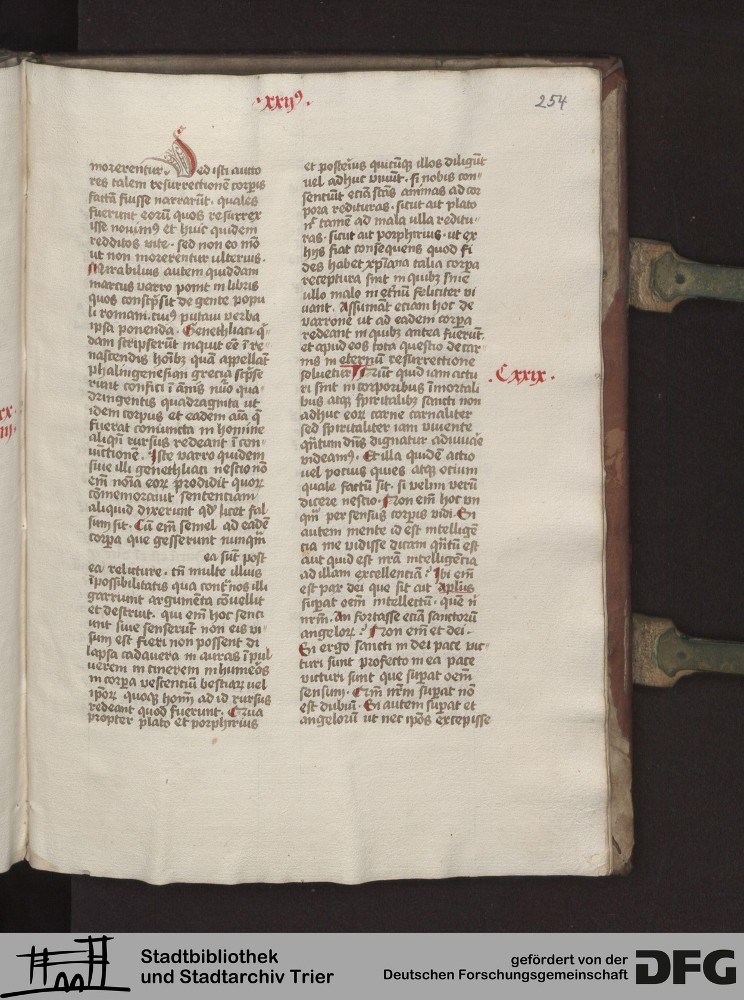 ·xxij⁹·
254
morerentur. Sed isti aucto
res talem resurrectionē corꝑis
factā fuisse narrarūt. quales
fuerunt eorū quos resurrex
isse nouim⁹ et huic quidem
redditos vite. sed non eo mō
ut non morerentur ulterius.
Mirabilius autem quiddam
marcus varro ponit in libris
quos conscpͥsit de gente popu
li romani. cui⁹ putaui verba
ipsa ponenda. Genethliaci q̄
dam scripserūt inquit eē ī re
nascendis hoībꝫ quā appellāt
phalingenesian greci a scpͥse
runt confici ī ānis nūo qua
dringentis quadraginta ut
idem corpus et eadem aīa q̄
fuerat coniuncta in homine
aliqn̄ rursus redeant ī con
iūctionē. Iste varro quidem
siue illi genethliaci nescio nō
em̄ noīa eoꝝ prodidit quoꝝ
cōmemorauit sententiam
aliquid dixerunt qd' licet fal
sum sit. Cū em̄ semel ad eadē
corꝑa que gesserunt nunqͣm
ea sūt post
ea reliture. tn̄ multe illius
īpossibilitatis qua contͣ nos illi
garriunt argumēta cōuellit
et destruit. qui em̄ hoc senci
unt siue senserūt non eis vi
sum est fieri non possent di
lapsa cadauera in auras ī pul
uerem in cinerem in humores
in corꝑa vescentiū bestiaꝝ uel
ipōꝝ quoqꝫ homī ad id rursus
redeant quod fuerunt. Qua
propter plato et porphirius
et poster⁹ quicūqꝫ illos diligūt
uel adhuc viuūt. si nobis con
senciūt eciā scās animas ad cor
pora redituras. sicut ait plato
nͨ tamē ad mala ulla reditu
ras. sicut ait porphirius. ut ex
hijs fiat consequens quod fi
des habet xp̄iana talia corꝑa
receptura sint in quibꝫ sine
ullo malo in et̄nū feliciter vi
uant. Assumāt eciam hoc de
varrone ut ad eadem corꝑa
redeant in quibꝫ antea fuerūt.
et apud eos tota questio de car
nis in eternū resurrectione
soluetur. Nūc quid iam actu
ri sint in corporibus īmortali
bus atqꝫ spiritalibꝫ sancti non
adhuc eoꝝ carne carnaliter
sed spiritaliter iam viuente
qn̄tum dn̄s dignatur adiuuare
videam⁹. Et illa quidē actio
uel pocius quies atqꝫ ocium
quale futū sit. si velim verū
dicere nescio. Non em̄ hoc vn
qͣm per sensus corꝑis vidi. Si
autem mente id est intelligē
cia me vidisse dicam qn̄tū est
aut quid est nr̄a intelligēcia
ad illam excellenciā? Ibi em̄
est pax dei que sic̄ ait apl̄us
suꝑat oēm intellectū. quē nͥ
nr̄m. An fortasse eciā sanctorū
angeloꝝ? Non em̄ et dei.
Si ergo sancti in dei pace vic
turi sunt profecto in ea pace
victuri sunt que suꝑat oēm
sensum. Qm̄ nr̄m suꝑat nō
est dubiū. Si autem suꝑat et
angelorū ut nec ip̄os excepisse
·Cxxix·
xx·
iij·
Stadtbibliothek
und Stadtarchiv Trier
gefördert von der
Deutschen Forschungsgemeinschaft
DFG